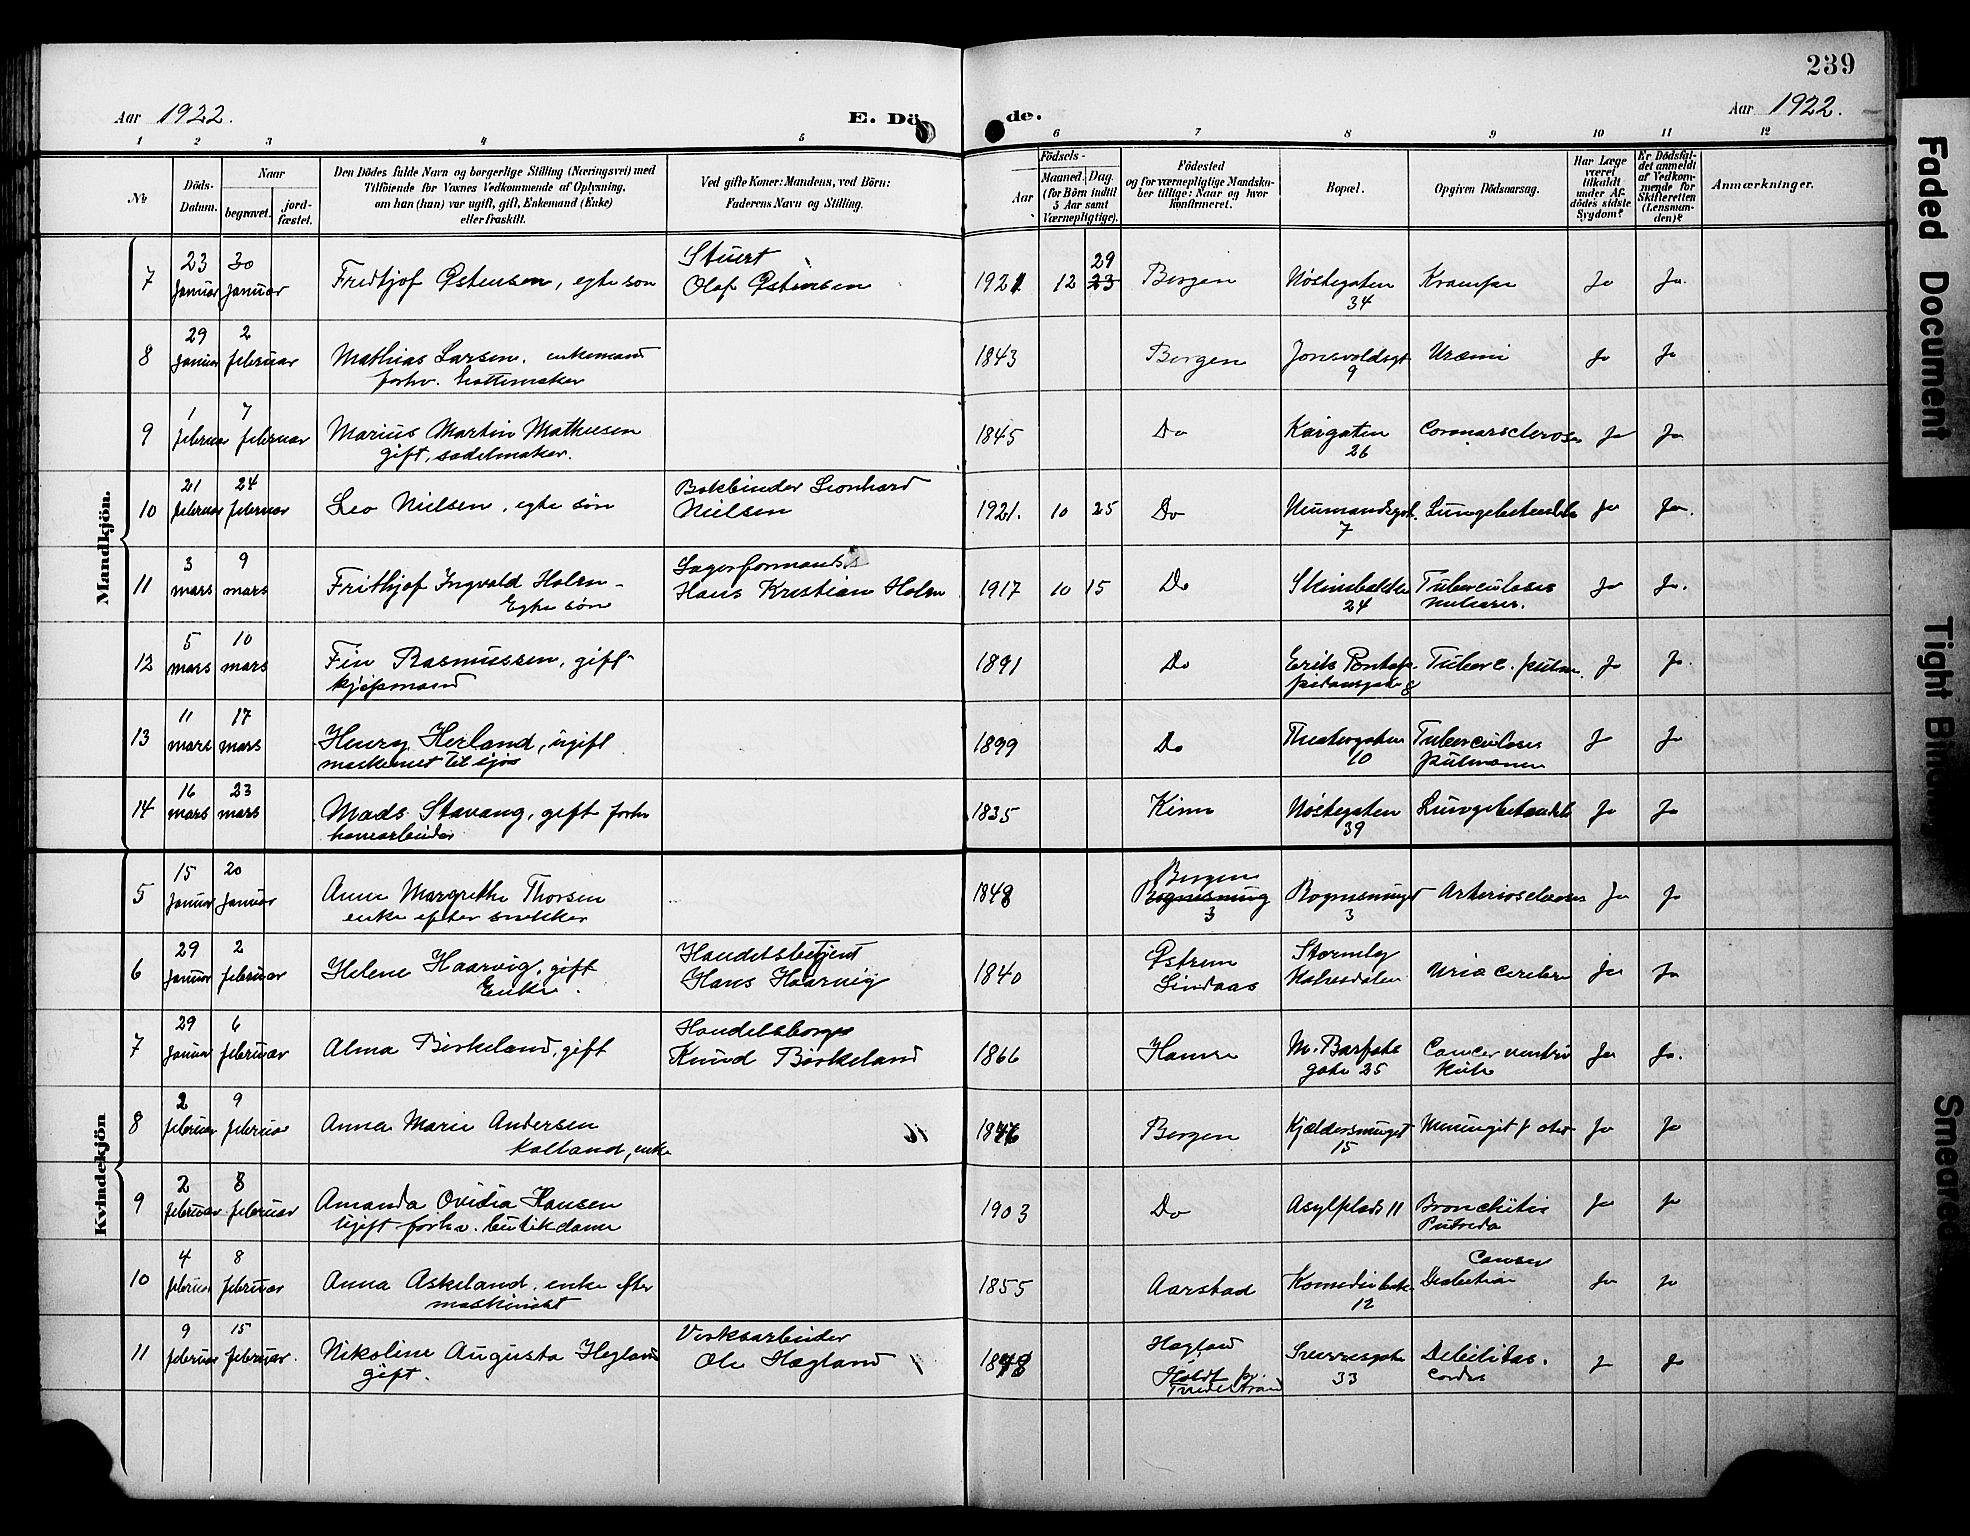 239
Aar 1922.
E. Dö de.
Aar 1922.
1 2 3 4 5 6 7 8 9 10 11 12
No
Döds-Datum.
Naar
begravet.
jord-fæstet.
Den Dödes fulde Navn og borgerlige Stilling (Næringsvei) med
Tilföiende for Voxnes Vedkommende af Oplysning,
om han (hun) var ugift, gift, Enkemand (Enke)
eller fraskilt.
Ved gifte Koner: Mandens, ved Börn:
Faderens Navn og Stilling.
Födsels-
Aar
Maaned. Dag.
(for Börn indtil
5 Aar samt
Værnepligtige).
Födested
og for værnepligtige Mandska-
ber tillige: Naar og hvor
konfirmeret.
Bopæl.
Opgiven Dödsaarsag.
Har Læge
været
tilkaldt
under Af-
dödes sidste
Sygdom?
Er Dödsfal-
det anmeldt
af Vedkom-
mende for
Skifteretten
(Lensman-
den)?
Anmærkninger.
Mandkjön.
7 23 Januar 30 Januar Fredtjof Østensen, egte søn Stuert Olaf Østensen 1921 12 29 23 Bergen Nøstegaten 34 Krampe Ja Ja.
8 29 Januar 2 februar Mathias Larsen, enkemand
forhv. hattemaker 1843 Bergen Jonsvoldsgt 9 Uræmi Ja Ja
9 1 februar 7 februar Marius Martin Mathiesen
gift, sadelmaker. 1845 Do Kaigaten 26 Coronarsclerose Ja Ja
10 21 februar 24 februar Leo Nielsen, egte søn Bokbinder Leonhard Nielsen 1921. 10 25 Do Neumandsgt. 7 Lungebetændelse Ja Ja.
11 3 mars 9 mars Frithjof Ingvald Holm
Egte søn Lagerformand Hans Kristian Holm 1917 10 15 Do 24 Tuberculosis miliaris. Ja Ja.
12 5 mars 10 mars Fin Rasmussen, gift
kjøpmand 1891 Do Erik Pontoppidansgate 8 Tuberc. pulm. Ja Ja.
13 11 mars 17 mars Henry Herland, ugift
maskinist til sjøs 1899 Do Theatergaten 10 Tuberculosis pulmonum Ja Ja
14 16 mars 23 mars Mads Stavang, gift forhv
havnearbeider 1835 Kinn Nøstegaten 39 Lungebetændelse Ja Ja
Kvindekjön
5 15 Januar 20 Januar Anne Margrethe Thorsen
enke efter snekker 1848 Bergen Rognesmug 3 Rognesmuget 3 Arteriosclerosis Ja Ja
6 29 Januar 2 februar Helene Haarvig, gift
Enke. Handelsbetjent Hans Haarvig 1840 Østrem Lindaas Stormeby Kalvedalen Cerebri Ja Ja
7 29 Januar 6 februar Alma Birkeland, gift Handelsborger Knud Birkeland 1866 Hamre M. Barfots gate 25 Cancer ventriculi Ja Ja.
8 2 februar 9 februar Anna Marie Andersen
Kolland, enke 1846 Bergen Kjeldersmuget 15 Meningit Ja Ja
9 2 februar 8 februar Amanda Ovidia Hansen
Ugift forhv. butikdame 1903 Do Asylplads 11 Bronchitis Putrida Ja Ja
10 4 februar 8 februar Anna Askeland, enke efter
maskinist 1855 Aarstad Komediebak. 12 Cancer Ja Ja
11 9 februar 15 februar. Nikoline Augusta Hegland
gift. Verksarbeider Ole Hegland 1848 Hagland Holdt pr. Tvedestrand Sverresgate 33 Debilitas Cordis Ja Ja
Faded Document
Tight Bin
Smeared